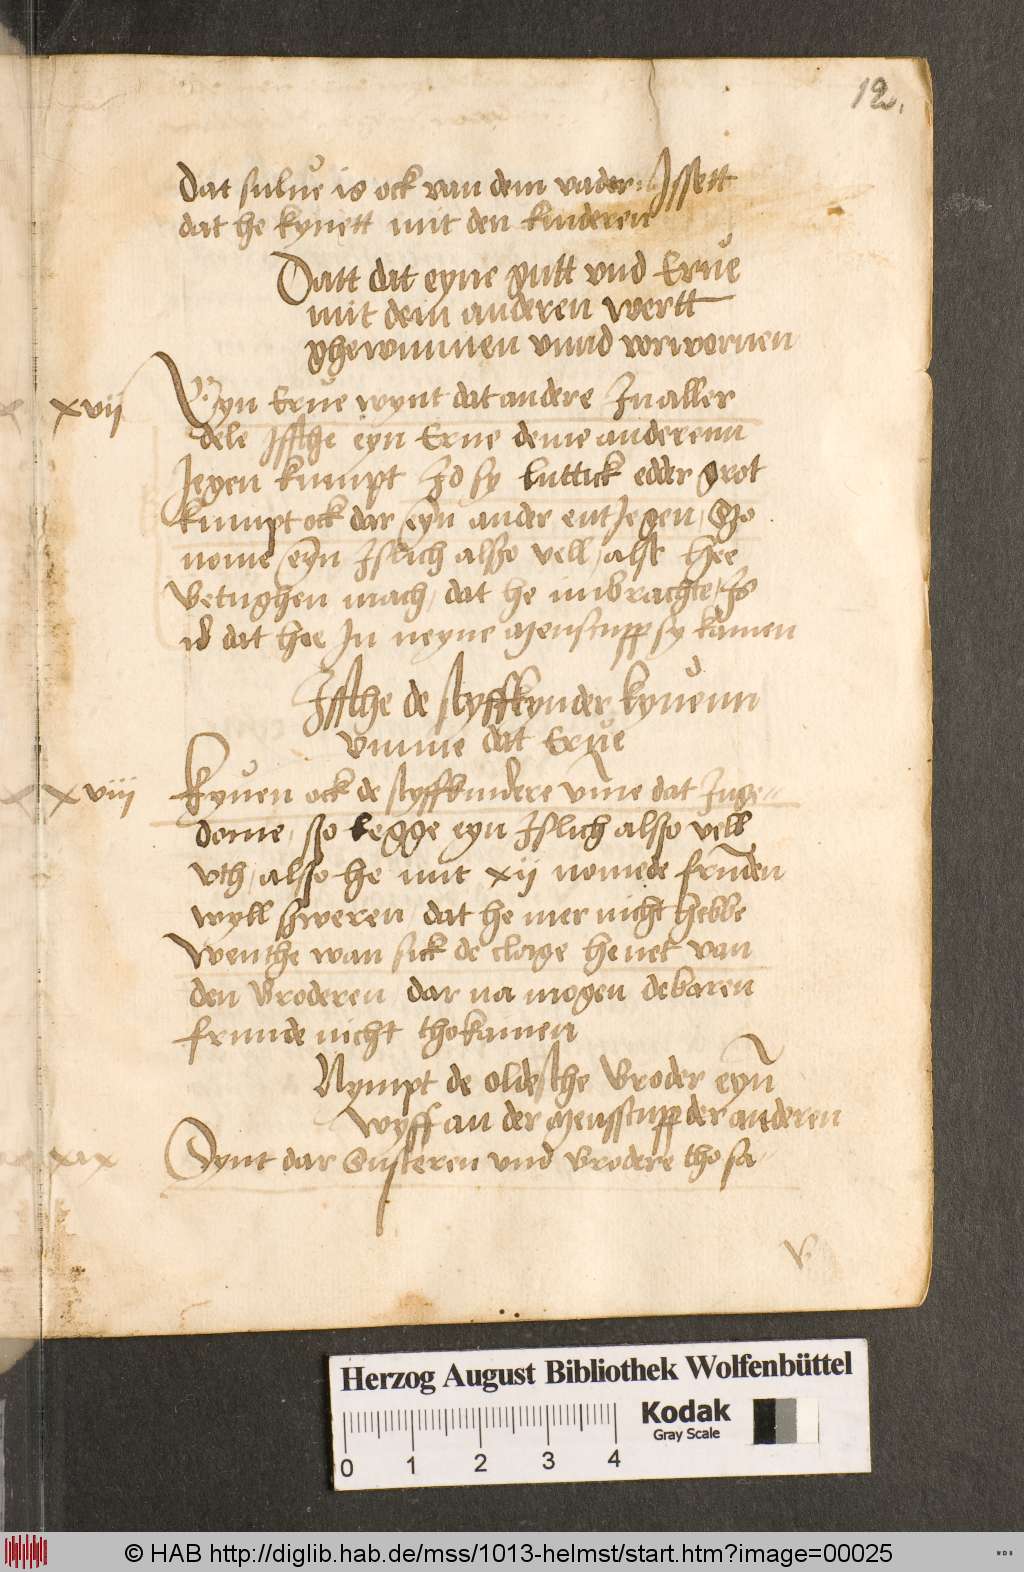 12.
Dat sulue is ock van dem vadern Issett
dat he kyuett mit den kinderen
Datt dat eyne gutt vnd Erue
mit dem anderen wertt
ghewunnen vnnd vorwornen
xvii Eyn Erue wynt dat andere In aller
dele Iffthe eyn Erue deme anderenn
Jegen kumpt Id sy luttick edder grot
kumpt ock dar eyn ander entJegen, Szo
nome eyn Islich alßo vell, alse hee
betughen mach, dat he inbrachte, Is
id dat hee In neyne menscupp sy kamen
Iffthe de styffkynder kyuenn
vmme dat Erue
xviii Kyuen ock de styffkindere vme dat Inge-
dome, so legge eyn Islich also vell
vth, also he mit xii nomede frunden
wyll sweren dat he mer nicht hebbe
wenthe wan sick de clage heuet van
den broderen dar na mogen debaren
frunde nicht thokamen
Nympt de oldesthe broder eyn
wyff an der menscupp der anderen
xix Synt dar Susteren vnd brodere tho sa-
Herzog August Bibliothek Wolfenbüttel
Kodak
Gray Scale
0 1 2 3 4
© HAB http://diglib.hab.de/mss/1013-helmst/start.htm?image=00025